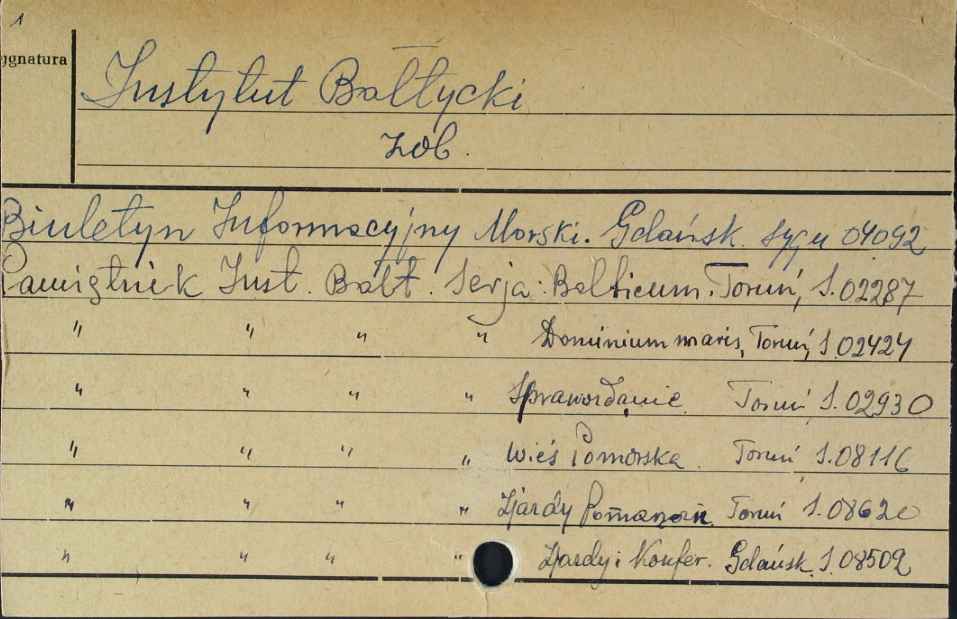 1
ygnatura
Instytut Bałtycki
zob.
Biuletyn Informacyjny Morski. Gdańsk. sygn 04092
Pamiętnik Inst. Bałt. Serja: Balticum. Toruń, S.02287
" " " " Dominium maris, Toruń, S.02424
" " " " Sprawozdanie Toruń, S.02930
" " " " Wieś Pomorska. Toruń S.08116
" " " " Zjazdy Toruń S.08620
" " " " Zjazdy i Konfer. Gdańsk. S.08502